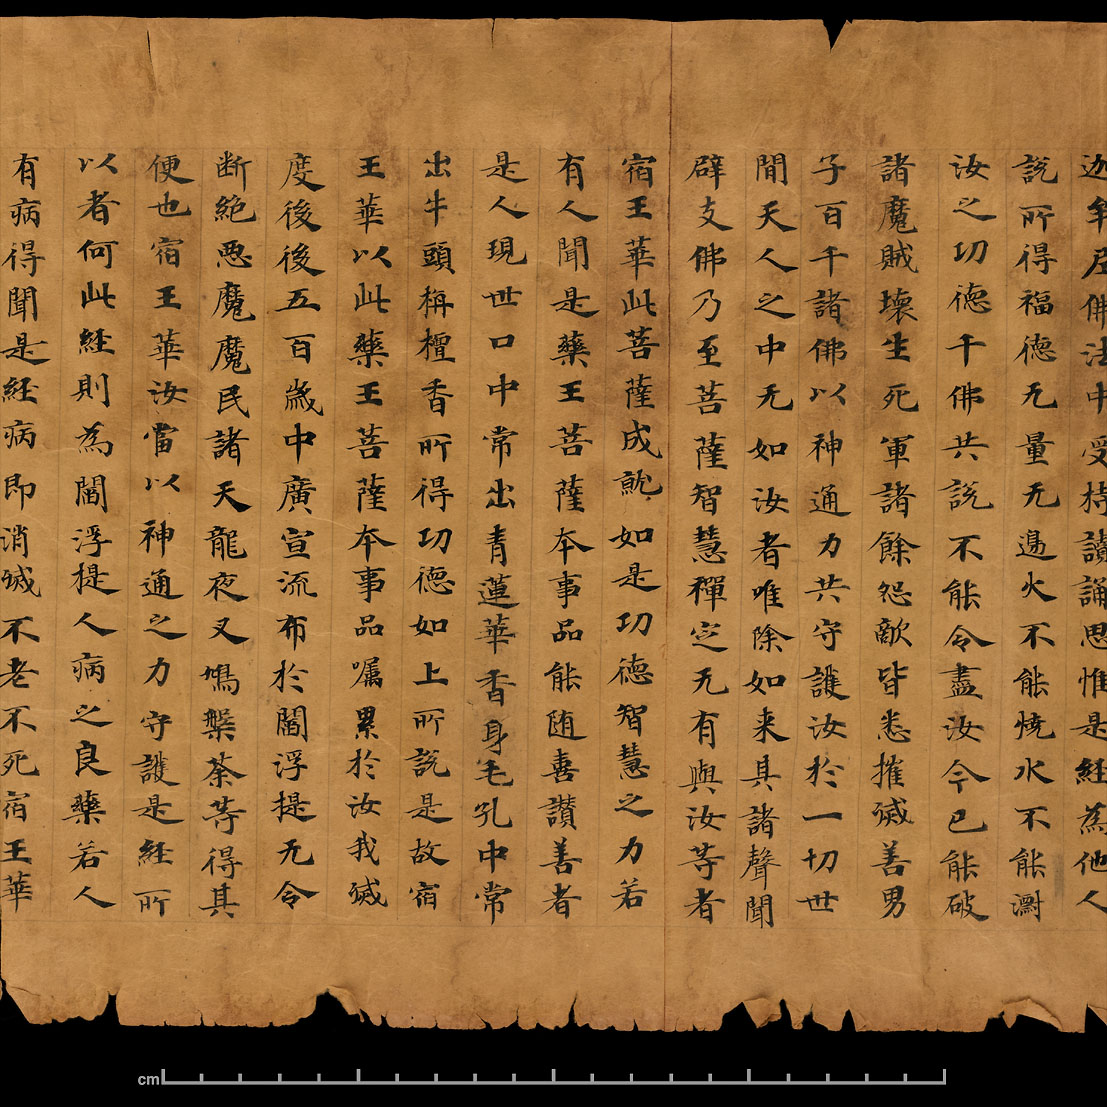 迦牟尼佛法中受持讀誦思惟是経為他人
說所得福德无量无邊火不能燒水不能漂
汝之功德千佛共說不能令盡汝今已能破
諸魔賊壞生死軍諸餘怨敵皆悉摧滅善男
子百千諸佛以神通力共守護汝於一切世
間天人之中无如汝者唯除如来其諸聲聞
辟支佛乃至菩薩智慧禪定无有與汝等者
宿王華此菩薩成就如是功德智慧之力若
有人聞是藥王菩薩本事品能随喜讚善者
是人現世口中常出青蓮華香身毛孔中常
出牛頭栴檀香所得功德如上所說是故宿
王華以此藥王菩薩本事品嘱累於汝我滅
度後後五百歲中廣宣流布於閻浮提无令
断絕惡魔魔民諸天龍夜叉鳩槃荼等得其
便也宿王華汝當以神通之力守護是経所
以者何此経則為閻浮提人病之良藥若人
有病得聞是経病即消滅不老不死宿王華